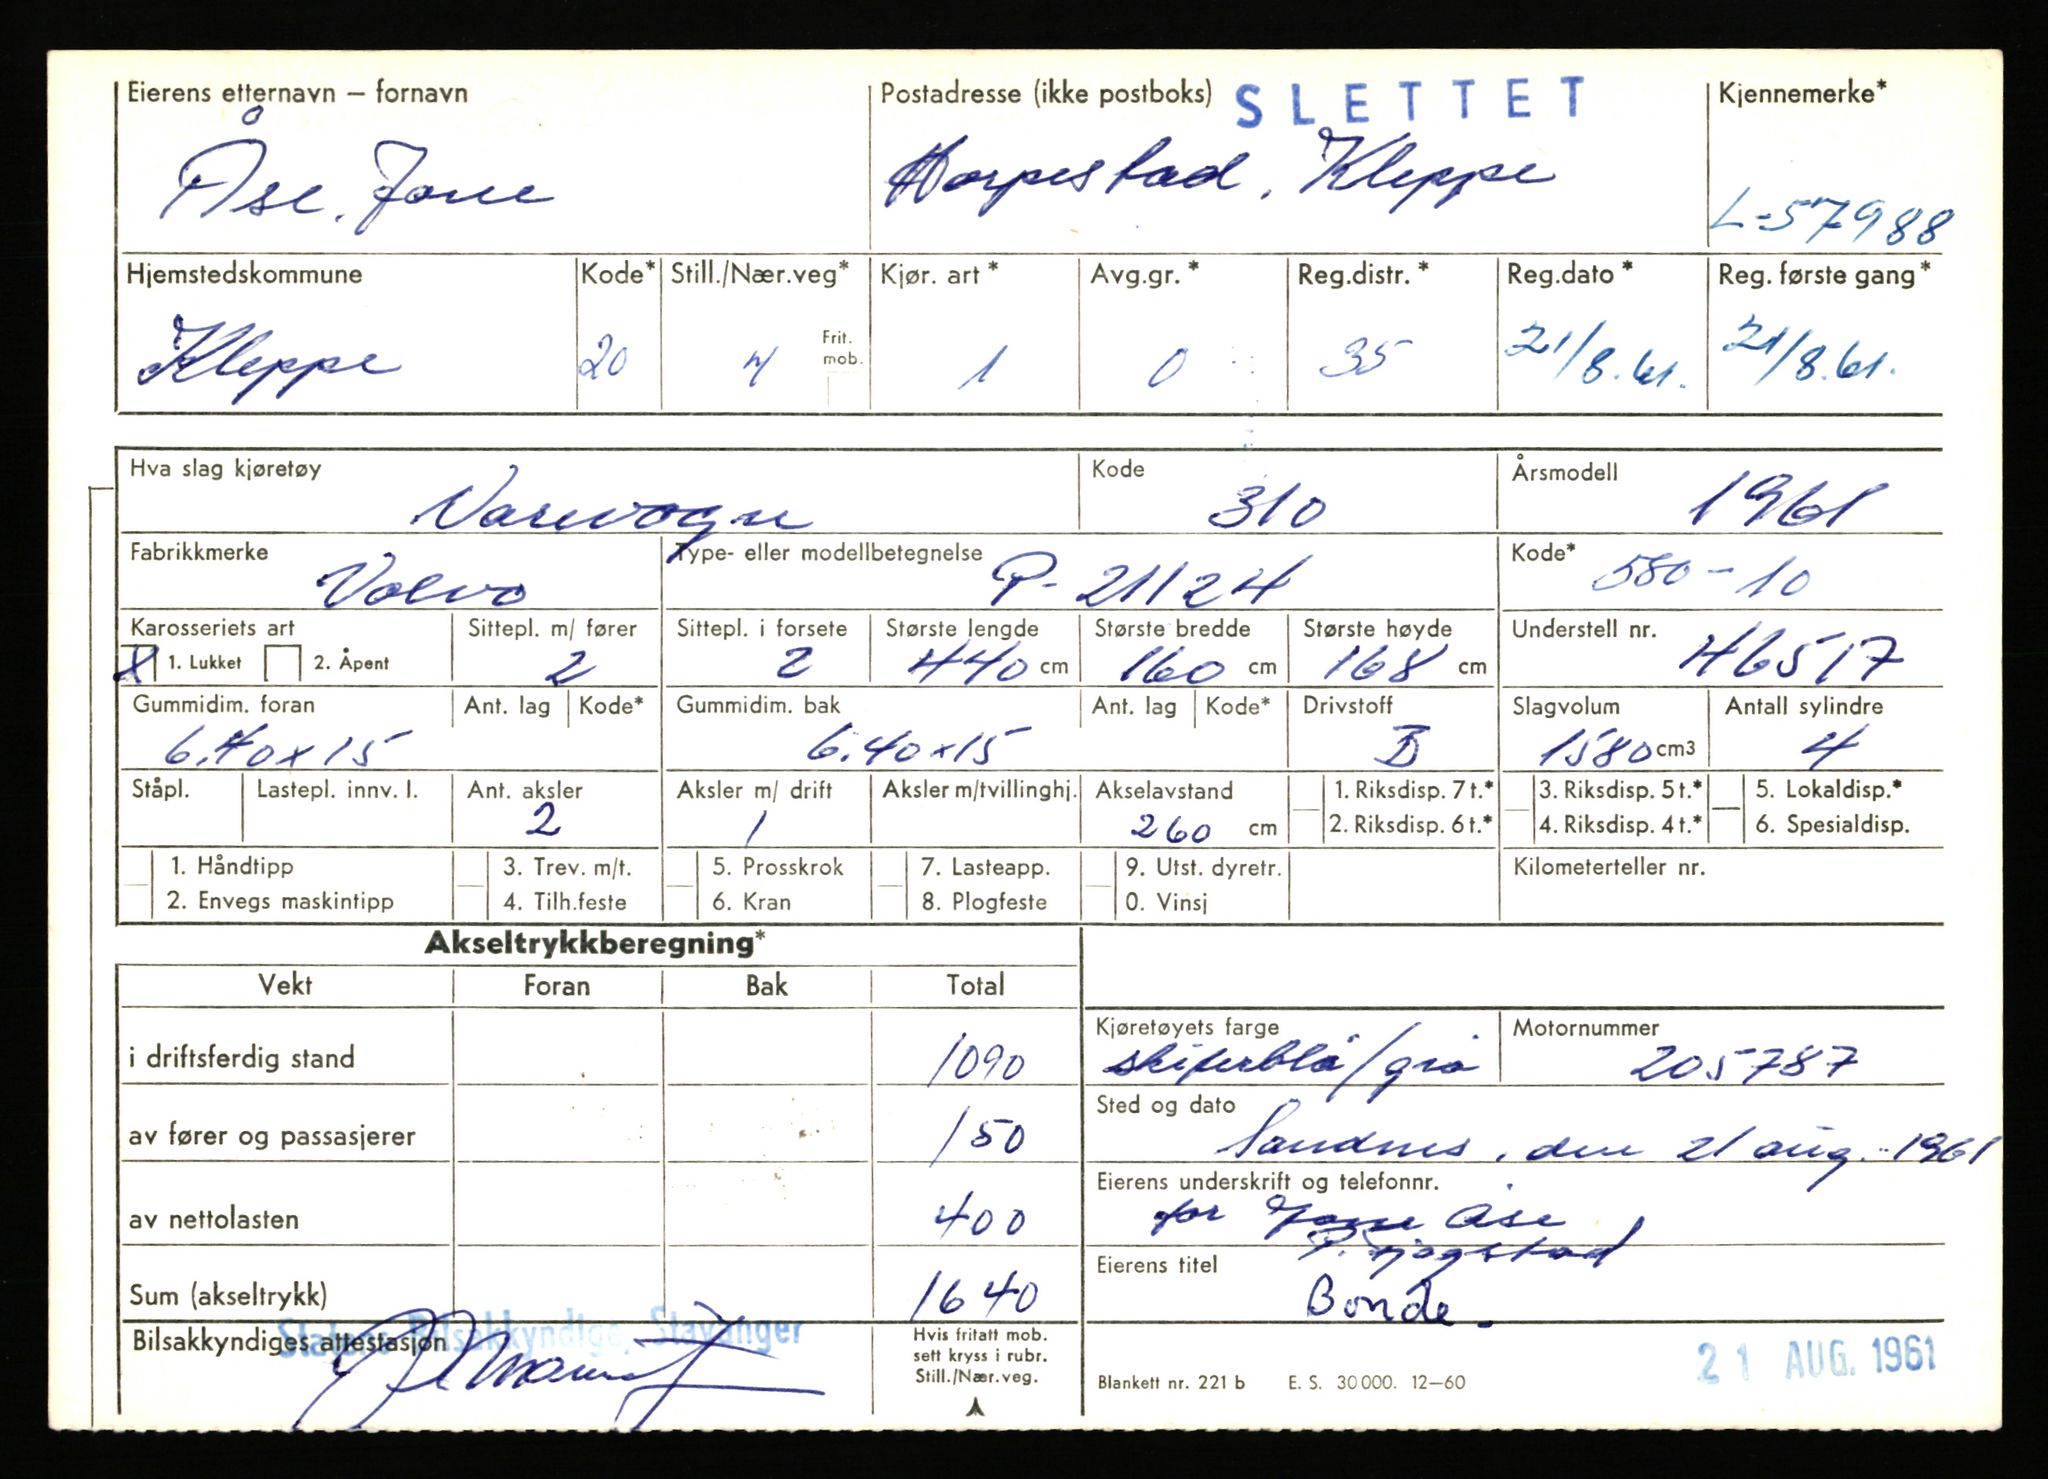 Eierens etternavn – fornavn Postadresse (ikke postboks) SLETTET Kjennemerke*
Åse, Jone Horpestad, Kleppe L-57988
Hjemstedskommune Kode* Still./Nær.veg* Kjør. art* Avg.gr.* Reg.distr.* Reg.dato* Reg. første gang*
Frit. mob.
Kleppe 20 1 0 35 21/8.61. 21/8.61.
Hva slag kjøretøy Kode Årsmodell
Varevogn 310 1961
Fabrikkmerke Type- eller modellbetegnelse Kode*
Volvo P-21124 580-10
Karosseriets art Sittepl. m/ fører Sittepl. i forsete Største lengde Største bredde Største høyde Understell nr.
X 1. Lukket 2. Åpent 2 2 440 cm 160 cm 168 cm 46517
Gummidim. foran Ant. lag Kode* Gummidim. bak Ant. lag Kode* Drivstoff Slagvolum Antall sylindre
6.40x15 6.40x15 B 1580 cm3 4
Ståpl. Lastepl. innv. l. Ant. aksler Aksler m/ drift Aksler m/tvillinghj. Akselavstand 1. Riksdisp. 7 t.* 3. Riksdisp. 5 t.* 5. Lokaldisp.*
2 1 260 cm 2. Riksdisp. 6 t.* 4. Riksdisp. 4 t.* 6. Spesialdisp.
1. Håndtipp 3. Trev. m/t. 5. Prosskrok 7. Lasteapp. 9. Utst. dyretr. Kilometerteller nr.
2. Envegs maskintipp 4. Tilh.feste 6. Kran 8. Plogfeste 0. Vinsj
Akseltrykkberegning*
Vekt Foran Bak Total
Kjøretøyets farge Motornummer
i driftsferdig stand 1090 skiferblå/grå 205787
Sted og dato
av fører og passasjerer 150 Sandnes, den 21 aug. 1961
Eierens underskrift og telefonnr.
av nettolasten 400 for Jone Åse
Eierens titel
Sum (akseltrykk) 1640 Bonde
Statens Bilsakkyndige, Stavanger
Bilsakkyndiges attestasjon Hvis fritatt mob.
sett kryss i rubr.
Still./Nær.veg.
21 AUG. 1961
Blankett nr. 221 b E. S. 30 000. 12–60